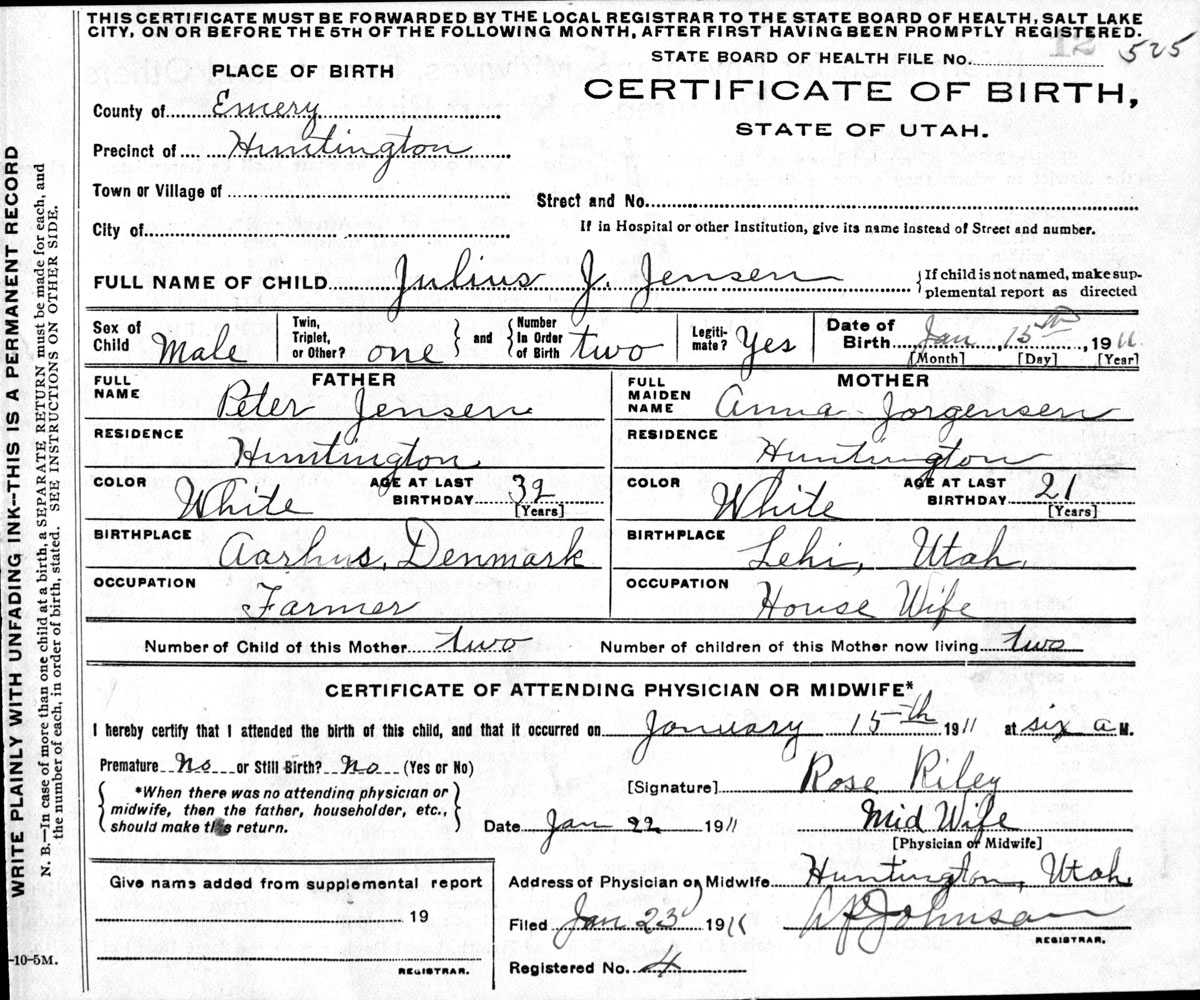 THIS CERTIFICATE MUST BE FORWARDED BY THE LOCAL REGISTRAR TO THE STATE BOARD OF HEALTH, SALT LAKE
CITY, ON OR BEFORE THE 5TH OF THE FOLLOWING MONTH, AFTER FIRST HAVING BEEN PROMPTLY REGISTERED.
12 525
STATE BOARD OF HEALTH FILE No.
PLACE OF BIRTH
CERTIFICATE OF BIRTH,
STATE OF UTAH.
County of Emery
Precinct of Huntington
Town or Village of
Street and No.
City of
If in Hospital or other Institution, give its name instead of Street and number.
FULL NAME OF CHILD Julius J. Jensen {If child is not named, make sup-
plemental report as directed
Sex of Child Male
Twin, Triplet, or Other? one } and { Number In Order of Birth two
Legiti- mate? Yes
Date of Birth Jan, 15th, 1911
[Month] [Day] [Year]
FATHER
FULL NAME Peter Jensen
RESIDENCE Huntington
COLOR White AGE AT LAST BIRTHDAY 32 [Years]
BIRTHPLACE Aarhus, Denmark
OCCUPATION Farmer
MOTHER
FULL MAIDEN NAME Anna Jorgensen
RESIDENCE Huntington
COLOR White AGE AT LAST BIRTHDAY 21 [Years]
BIRTHPLACE Lehi, Utah
OCCUPATION House Wife
Number of Child of this Mother two Number of children of this Mother now living two
CERTIFICATE OF ATTENDING PHYSICIAN OR MIDWIFE*
I hereby certify that I attended the birth of this child, and that it occurred on January 15th 1911 at six a M.
Premature No or Still Birth? No (Yes or No)
{*When there was no attending physician or
midwife, then the father, householder, etc.,
should make this return.}
[Signature] Rose Riley
Date Jan 22 1911 Mid Wife
[Physician or Midwife]
Give name added from supplemental report
19
REGISTRAR.
Address of Physician or Midwife Huntington, Utah
Filed Jan 23 1911 Johnson
REGISTRAR.
Registered No. 4
WRITE PLAINLY WITH UNFADING INK—THIS IS A PERMANENT RECORD
N. B.—In case of more than one child at a birth, a SEPARATE RETURN must be made for each, and
the number of each, in order of birth, stated. SEE INSTRUCTIONS ON OTHER SIDE.
-10-5M.